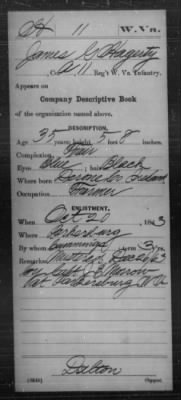 H 11 W. Va.
James C. Hagerty
, Co. A 11 Reg't W. Va. Infantry.
Appears on
Company Descriptive Book
of the organization named above.
DESCRIPTION.
Age 35 years; height 5 feet 8 inches.
Complexion Fair
Eyes Blue ; hair Black
Where born Ireland
Occupation Farmer
ENLISTMENT.
When Oct 20 , 1863
Where Parkersburg
By whom Cummings ; term 3 y'rs.
Remarks: Mustered
by Capt
at Parkersburg W Va
Dalton
Copyist.